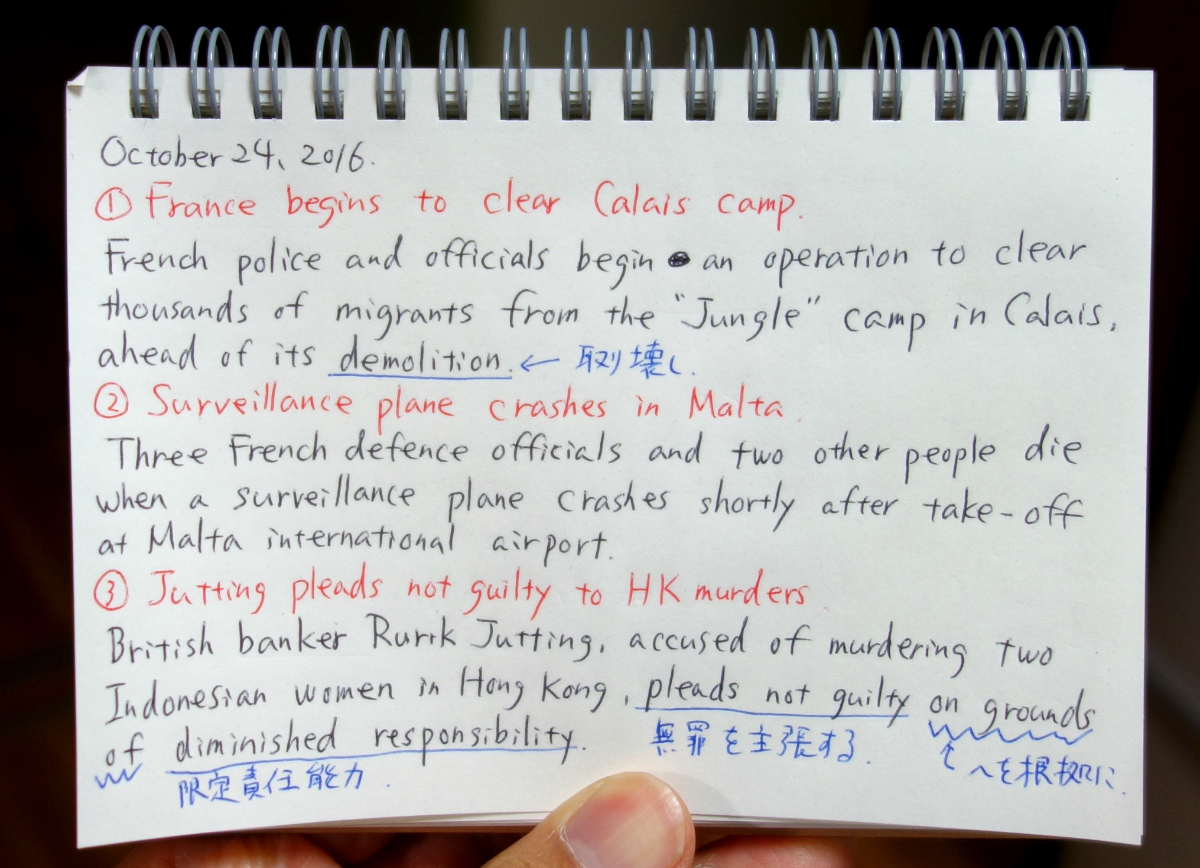 October 24、2016.
① France begins to clear Calais camp.
French police and officials begin an operation to clear
thousands of migrants from the "Jungle" camp in Calais,
ahead of its demolition. ← 取り壊し.
② Surveillance plane crashes in Malta
Three French defence officials and two other people die
when a surveillance plane crashes shortly after take-off
at Malta international airport.
③ Jutting pleads not guilty to HK murders
British banker Rurik Jutting, accused of murdering two
Indonesian women in Hong Kong, pleads not guilty on grounds
of diminished responsibility. 無罪を主張する.
限定責任能力. 〜を根拠に.